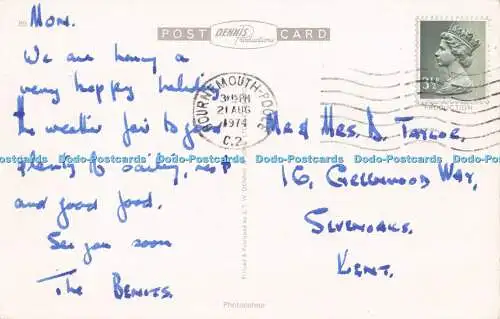 POST Dennis Productions CARD
Mon.
We are having a
very happy holiday
the weather fair to good
plenty of sailing, rest
and good food.
See you soon
The Benits.
BOURNEMOUTH-POOLE
3 15 PM
21 AUG
1974
C.2
3½P
Mr & Mrs. D. Taylor.
16, Greenwood Way,
Sevenoaks.
Kent.
Dodo-Postcards Dodo-Postcards Dodo-Postcards Dodo-Postcards Dodo-Postcards Dodo-Postcards
Photocolour